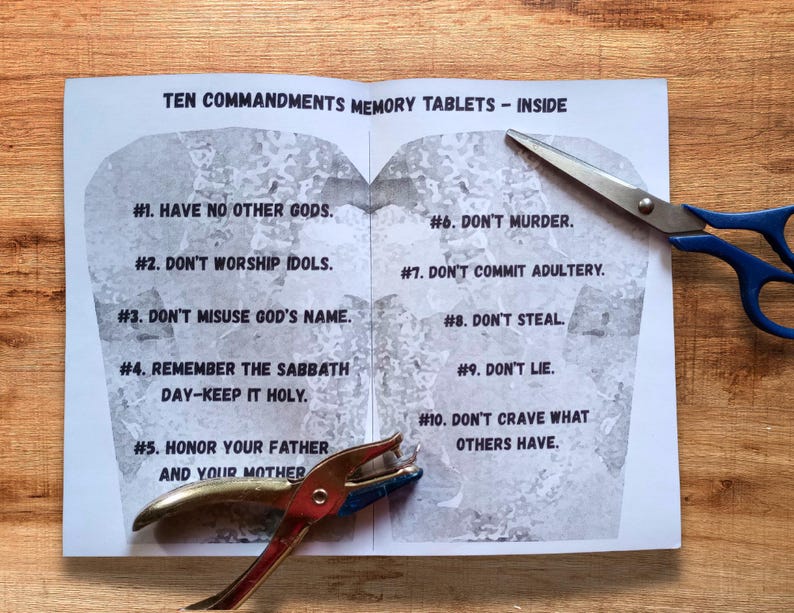 TEN COMMANDMENTS MEMORY TABLETS – INSIDE
#1. HAVE NO OTHER GODS.
#2. DON'T WORSHIP IDOLS.
#3. DON'T MISUSE GOD'S NAME.
#4. REMEMBER THE SABBATH
DAY–KEEP IT HOLY.
#5. HONOR YOUR FATHER
AND YOUR MOTHER
#6. DON'T MURDER.
#7. DON'T COMMIT ADULTERY.
#8. DON'T STEAL.
#9. DON'T LIE.
#10. DON'T CRAVE WHAT
OTHERS HAVE.